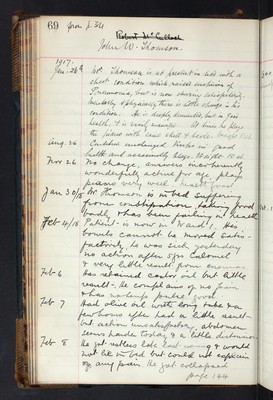 69 from p. 34
Robert McCulloch
John W. Thomson.
1917.
Jan. 26th Mr Thomson is at present in bed with a
chest condition which raised suspicion of
Pneumonia, but is now showing satisfactorily.
Mentally & physically there is little change in his
condition. He is deeply demented, but in good
health, & is nearly
the piano with some skill & taste.
Aug. 26 Condition unchanged. Keeps in good
health and occasionally plays.
Nov 26 No change, answers incoherently
wonderfully active for age, plays
piano very well.
Jan 30/18 Mr Thomson is in bed suffering
from constipation, taking food
badly & has been failing in health
Feb 4/18 Patient is now in Ward 1. His
bowels cannot be moved satis-
factorily, he was sick yesterday
no action after 5grs Calomel
& very little result from enemas
Feb 6 has retained castor oil but little
result. He complains of no pain
& has no temp. pulse good.
Feb 7 Had olive oil, a few
few hours after had a little result
but action unsatisfactory, abdomen
seems harder today & a little distension
Feb 8 He got restless late last evening & would
not lie in bed but could not explain
any pain. He got collapsed
page 144